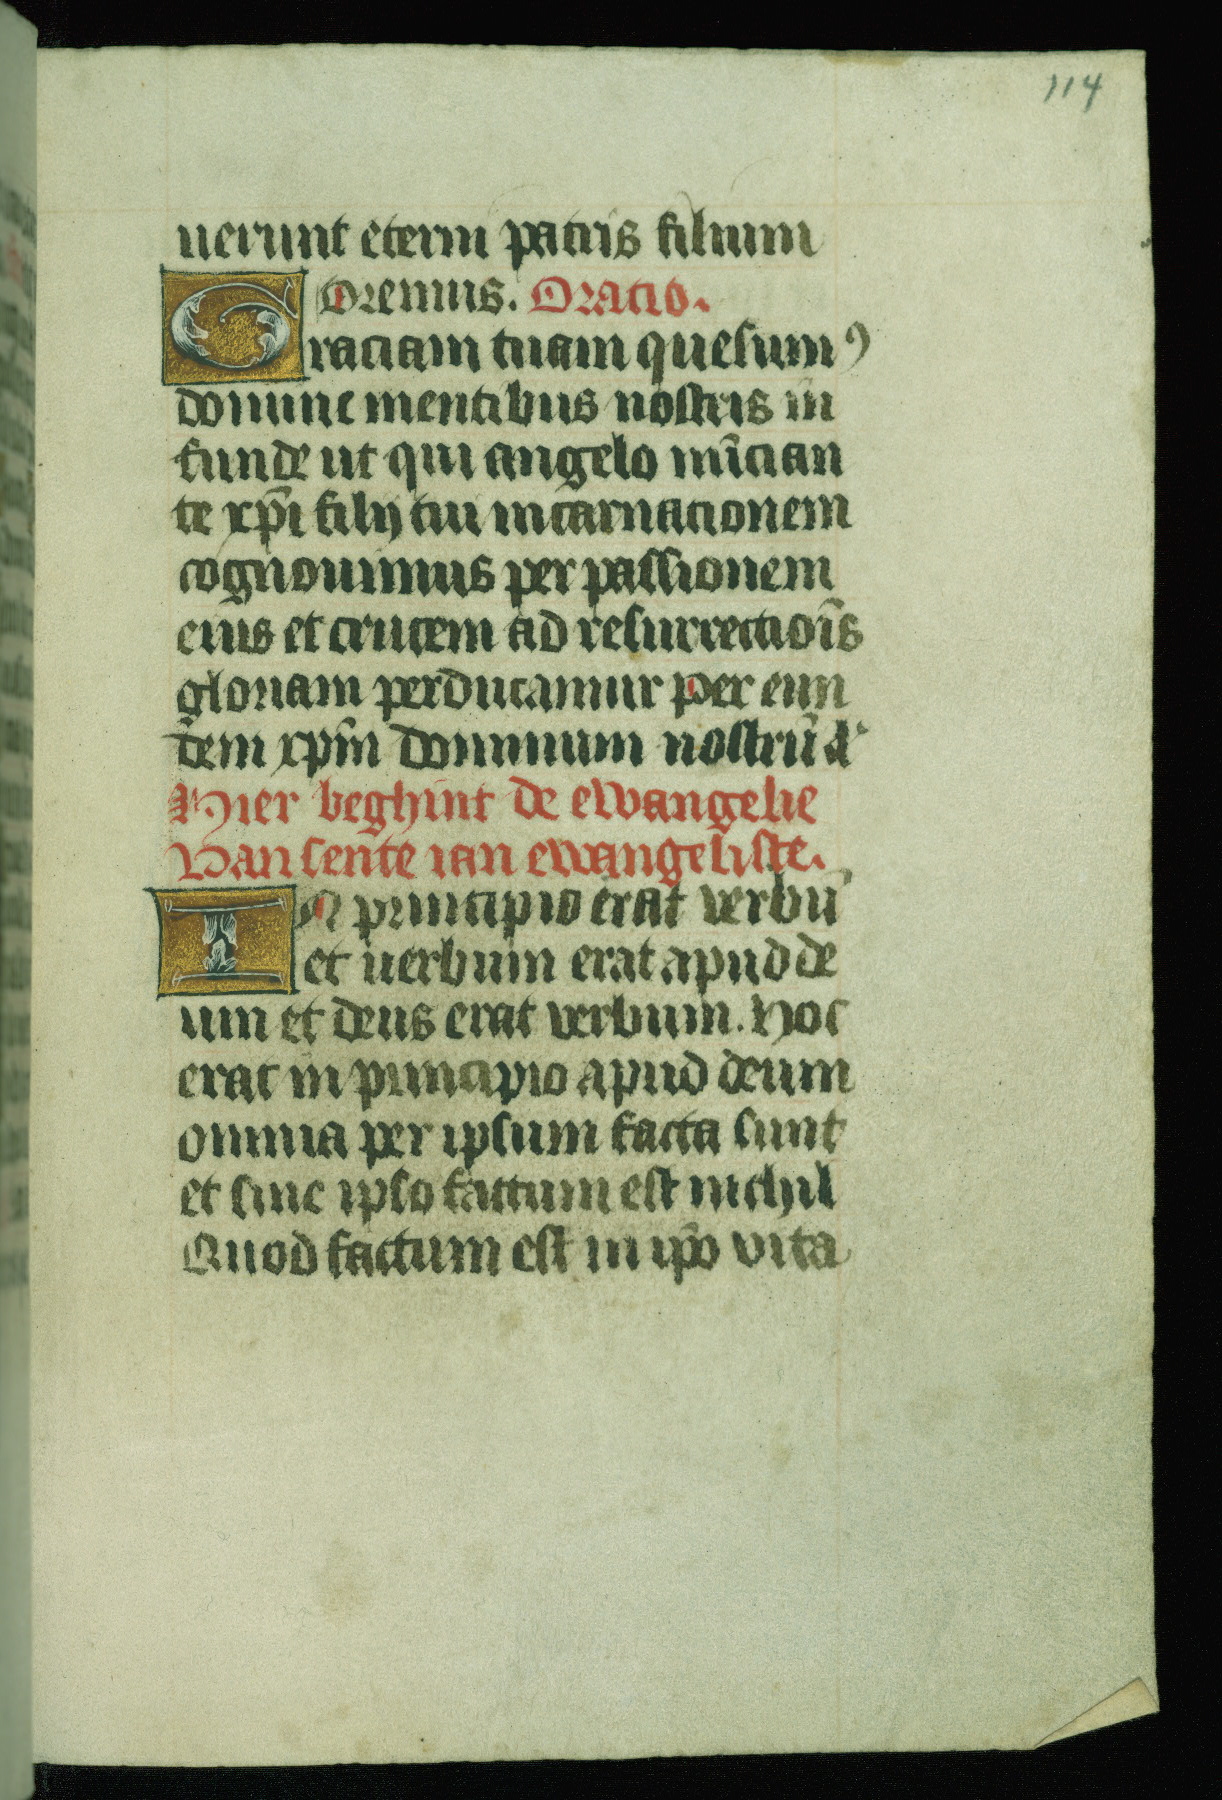 114
uerunt eterni patris filium
Oremus. Oratio.
Graciam tuam quesumꝰ
domine mentibus nostris in
funde ut qui angelo nūcian
te xp̄i filij tui incarnacionem
cognouimus per passionem
eius et crucem ad resurrectiōis
gloriam perducamur Per eun
dem xp̄m dominum nostrū A
Hier beghint de ewangelie
Van sente ian ewangeliste.
IN principio erat verbū
et uerbum erat apud de
um et deus erat verbum. Hoc
erat in principio apud deum
omnia per ipsum facta sunt
et sine ipso factum est nichil
Quod factum est in ip̄o vita